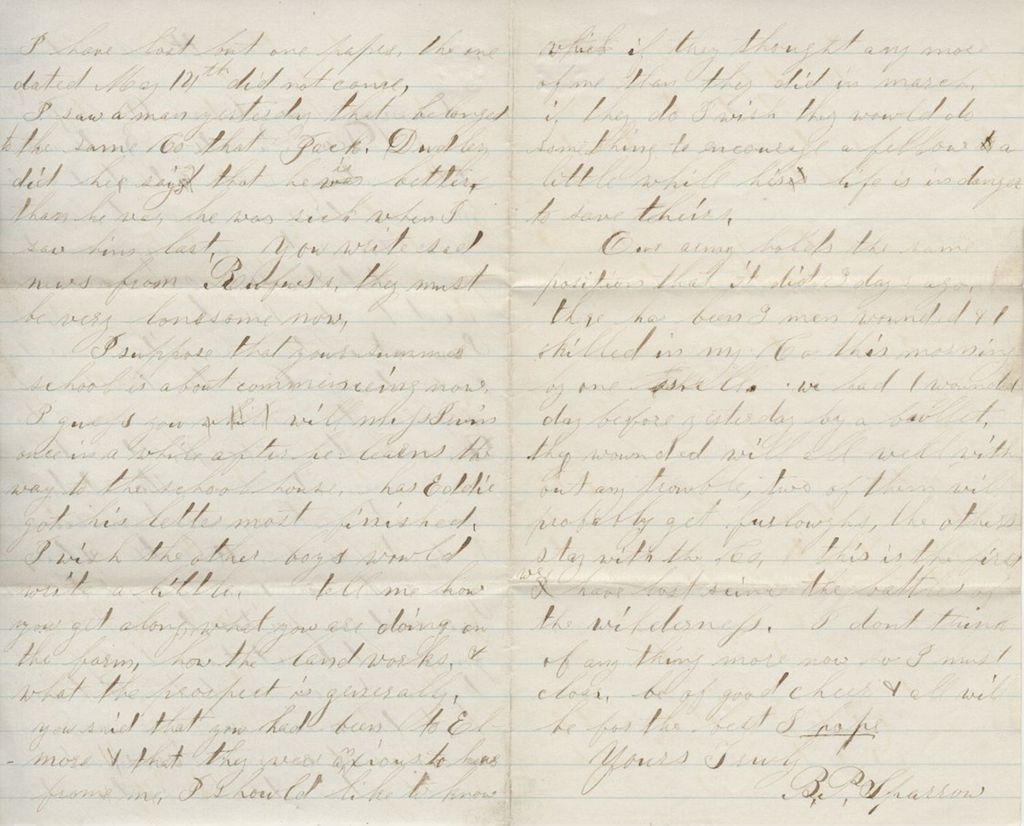 I have lost but one paper, the one
dated May 19th did not come,
I saw a man yesterday that belonged
to the same Co that Jack. Dudley
did he said that he was better,
than he was, he was sick when I
saw him last. You write sad
news from Rufus's, they must
be very lonesome now,
I suppose that your summer
school is about commenceing now,
I guess you will miss
once in a while after he learns the
way to the school house, has Eddie
got his letter most finished.
I wish the other boys would
write a little. tell me how
you get along, what you are doing on
the farm, how the land works, &
what the prospect is generally,
you said that you had been to El-
more & that they were anxious to hear
from me, I should like to know
which if they thought any more
of me than they did in march,
if they do I wish they would do
something to encourage a fellow a
little while his life is in danger
to save theirs,
Our army holds the same
position that it did 3 days ago,
there has been 3 men wounded & 1
killed in my Co this morning
by one shell. we had 1 wounded
day before yesterday by a bullet,
they wounded will all well with
out any trouble, two of them will
probably get furloughs, the others
stay with the Co, this is the first
we have lost since the battles of
the wilderness. I dont think
of any thing more now so I must
close, be of good cheer & all will
be for the best I hope
Yours Truly
B. P. Sparrow